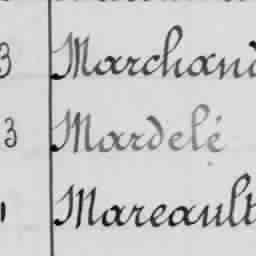 3 Marchand
3 Mardelé
1 Mareault